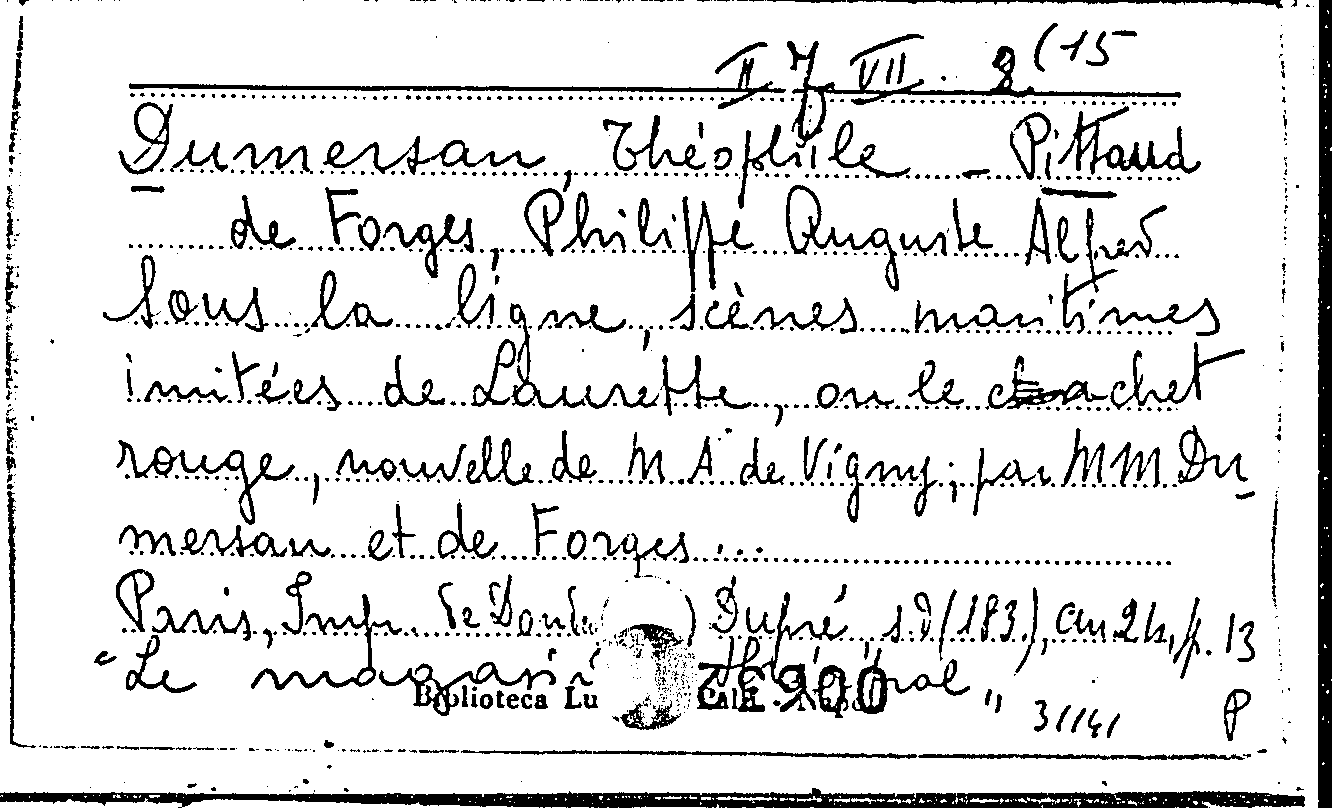 II 7 VII. 2(15
Dumersan, Théophile - Pittaud
de Forges, Philippe Auguste Alfred
Sous la ligne, scènes maritimes
imitées de Laurette, ou le cachet
rouge, nouvelle de M. A. de Vigny; par MM Du-
mersan et de Forges...
Paris, Impr. de ) Dupré, s.d (183.), p. 13
"Le magasi théâtral"
Biblioteca Lu Napoli 900
P